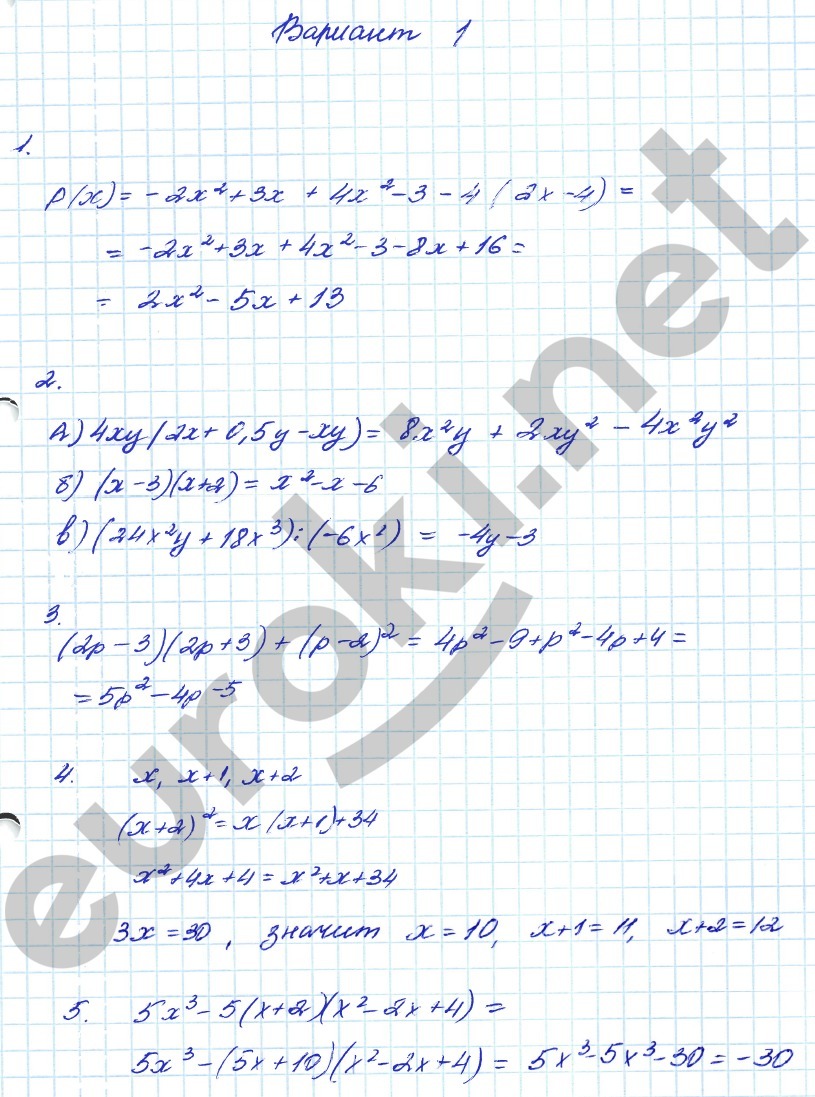 Вариант 1
1.
P(x) = -2x²+3x + 4x²-3-4(2x-4) =
= -2x²+3x+4x²-3-8x+16 =
= 2x²-5x+13
2.
А) 4xy(2x+0,5y-xy) = 8x²y + 2xy² - 4x²y²
б) (x-3)(x+2) = x²-x-6
в) (24x²y+18x³):(-6x²) = -4y-3
3.
(2p-3)(2p+3)+(p-2)² = 4p²-9+p²-4p+4 =
= 5p²-4p-5
4. x, x+1, x+2
(x+2)² = x(x+1)+34
x²+4x+4 = x²+x+34
3x = 30, значит x = 10, x+1 = 11, x+2 = 12
5. 5x³-5(x+2)(x²-2x+4) =
5x³-(5x+10)(x²-2x+4) = 5x³-5x³-30 = -30
euroki.net